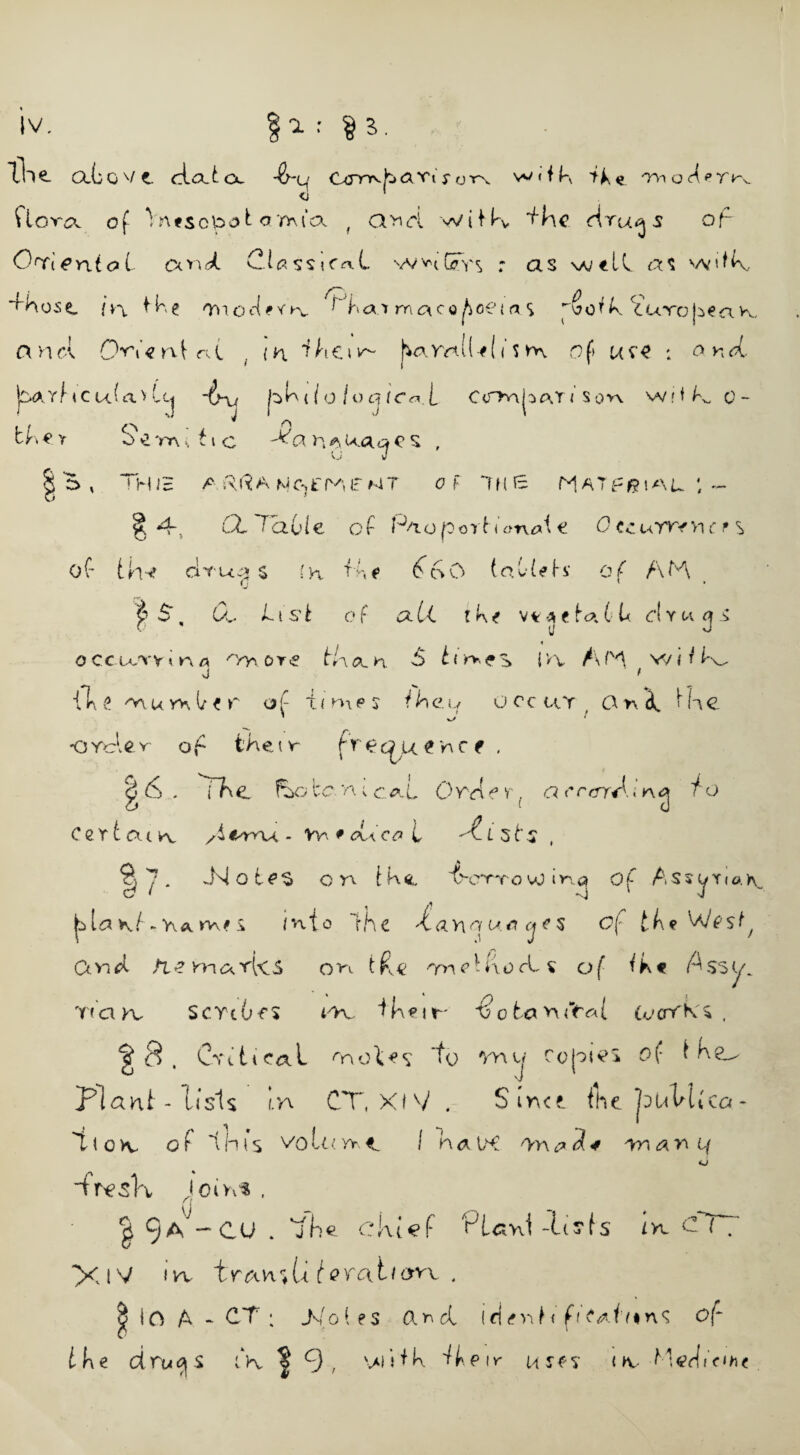 iv. § 2 : § 3.
The above data by comparison with the modern
flora of Mesopotamia, and with the drugs of
Oriental and Classical writers : as well as with
those in the modern Pharmacopoeias both European
and Oriental, in their parallelism of use : and
particularly by philological comparison with o-
ther Semitic languages,
§ 3, THE ARRANGEMENT OF THE MATERIAL : —
§ 4, A Table of Proportionate Occurrences
of the drugs in the 660 tablets of AM.
§ 5. A List of all the vegetable drugs
occurring more than 5 times in AM, with
the number of times they occur, and the
order of their frequence.
§ 6. The Botanical Order, according to
certain semi-medical lists,
§ 7. Notes on the borrowing of Assyrian
plant-names into the languages of the West,
and remarks on the methods of the Assy-
rian scribes in their botanical works.
§ 8. Critical notes to my copies of the
Plant-lists in CT, XIV. Since the publica-
tion of this volume I have made many
fresh joins.
§ 9A-CU. The chief Plant-lists in CT.
XIV in transliteration.
§ 10 A-CT: Notes and identifications of
the drugs in § 9, with their uses in Medicine